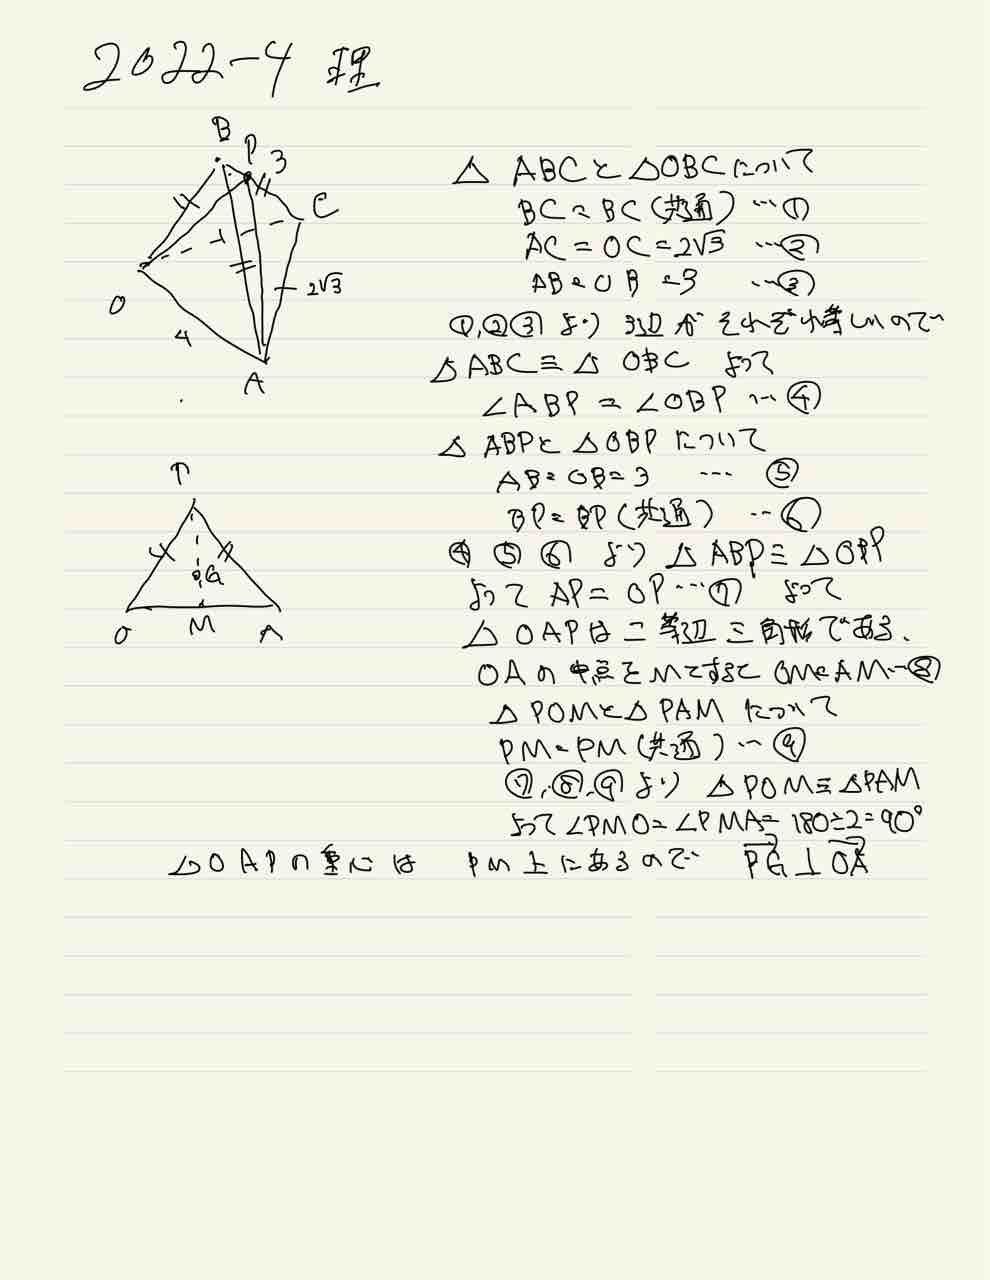 2022-4 理
B P 3
C
O
4
2√3
A
△ ABCと△OBCについて
BC = BC (共通) …①
AC = OC = 2√3 …②
AB = OB = 3 …③
①,②③ より 3辺がそれぞれ等しいので
△ABC≡△OBC よって
∠ABP = ∠OBP …④
△ABPと△OBPについて
AB = OB = 3 … ⑤
BP = BP (共通) …⑥
④ ⑤ ⑥ より △ABP≡△OBP
よって AP = OP …⑦ よって
△OAPは二等辺三角形である.
OAの中点をMとすると OM=AM…⑧
△POMと△PAM について
PM = PM (共通) …⑨
⑦,⑧,⑨ より △POM≡△PAM
よって∠PMO=∠PMA= 180÷2=90°
△OAPの重心は PM上にあるので PG⊥OA
P
G
O M A